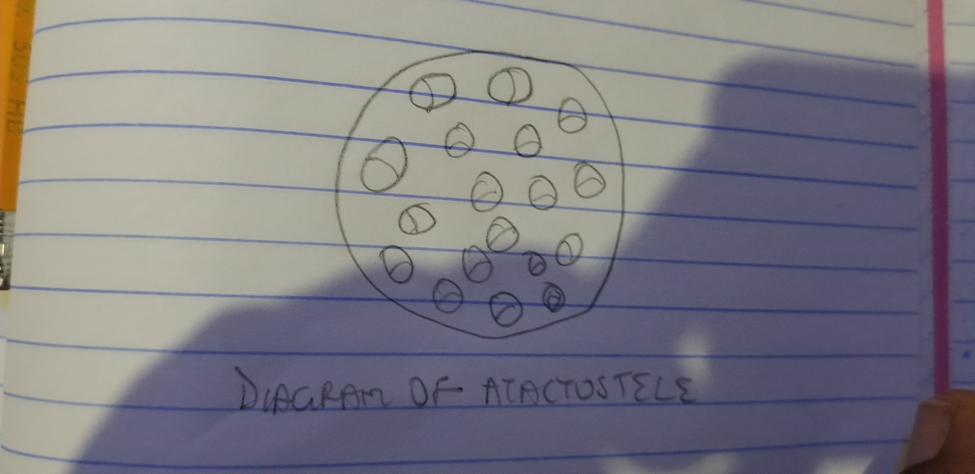 DIAGRAM OF ATACTOSTELE
HB